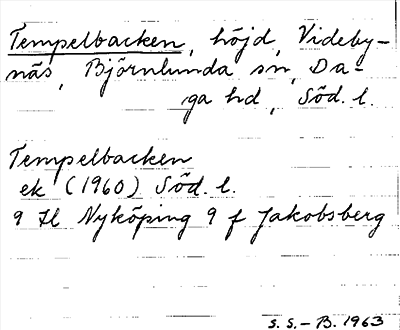 Tempelbacken, höjd, Videby-
näs, Björnlunda sn, Da-
ga hd, Söd. l.
Tempelbacken
ek (1960) Söd. l.
9 H Nyköping 9 f Jakobsberg
S. S. - B. 1963